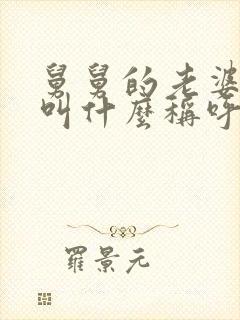 舅舅的老婆
叫什麼稱呼
羅景元